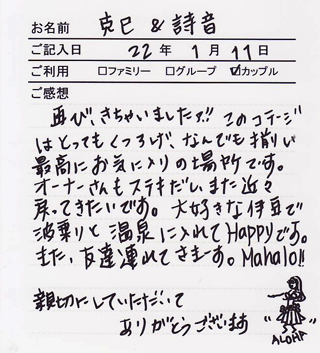 お名前 克巳 & 詩音
ご記入日 22 年 1 月 11 日
ご利用 □ファミリー □グループ ☑カップル
ご感想
再び、きちゃいましたァ!! このコテージ
はとってもくつろげ、なんでも揃い
最高にお気に入りの場所です。
オーナーさんもステキだし、また近々
戻ってきたいです。大好きな伊豆で
波乗りと温泉に入れてHappyです。
また、友達連れてきまーす。Mahalo!!
親切にしていただいて
ありがとうございます
ALOHA